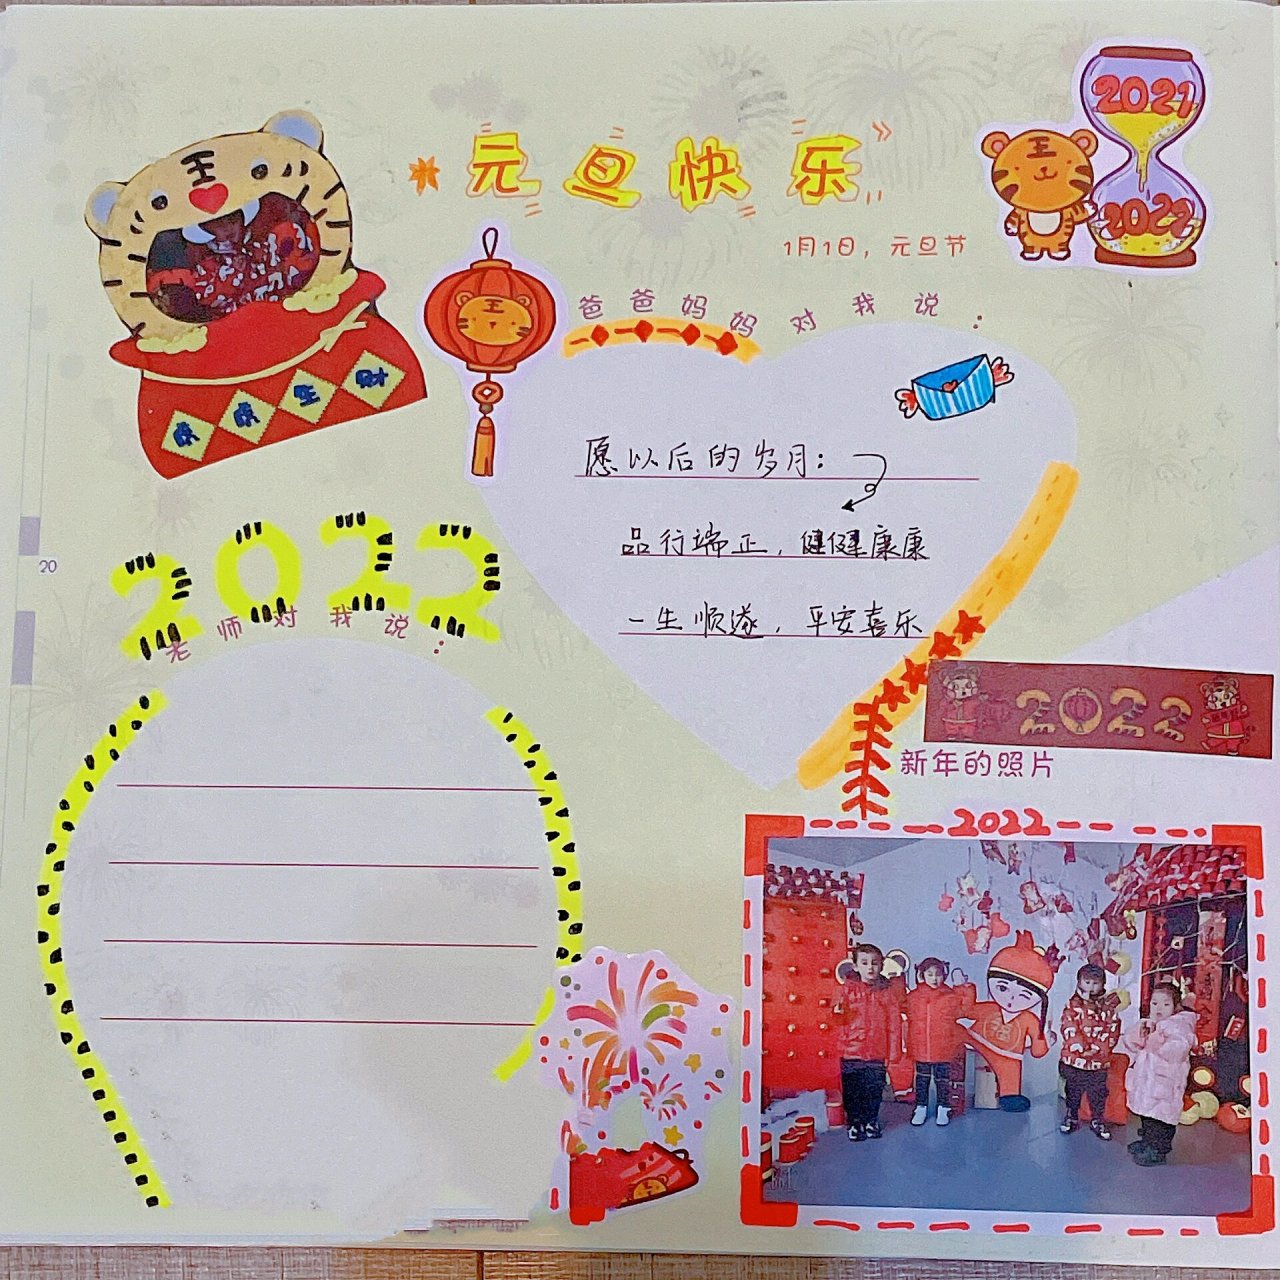 元旦快乐
2021
2022
王
1月1日，元旦节
王
王
爸爸妈妈对我说：
虎虎生财
愿以后的岁月：
品行端正，健健康康
一生顺遂，平安喜乐
20
2022
老师对我说：
2022
新年的照片
2022